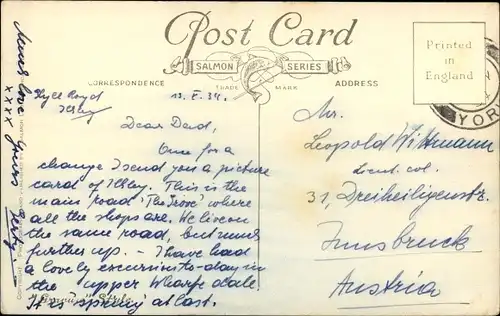 Post Card
SALMON SERIES
TRADE MARK
CORRESPONDENCE
ADDRESS
Printed
in
England
YOR
Ilkley
13. V. 34.
Dear Dad,
One for a
change I send you a picture
card of Ilkley. This is the
main road 'The Grove' where
all the shops are. We live on
the same road, but much
further up. — I have had
a lovely excursion to-day in
the upper Wharfedale.
It is 'spring' at last.
Much love
xxxx Yours
Mr.
Leopold Wittmann
Lieut. col.
31, Dreiheiligenstr.
Innsbruck
Austria